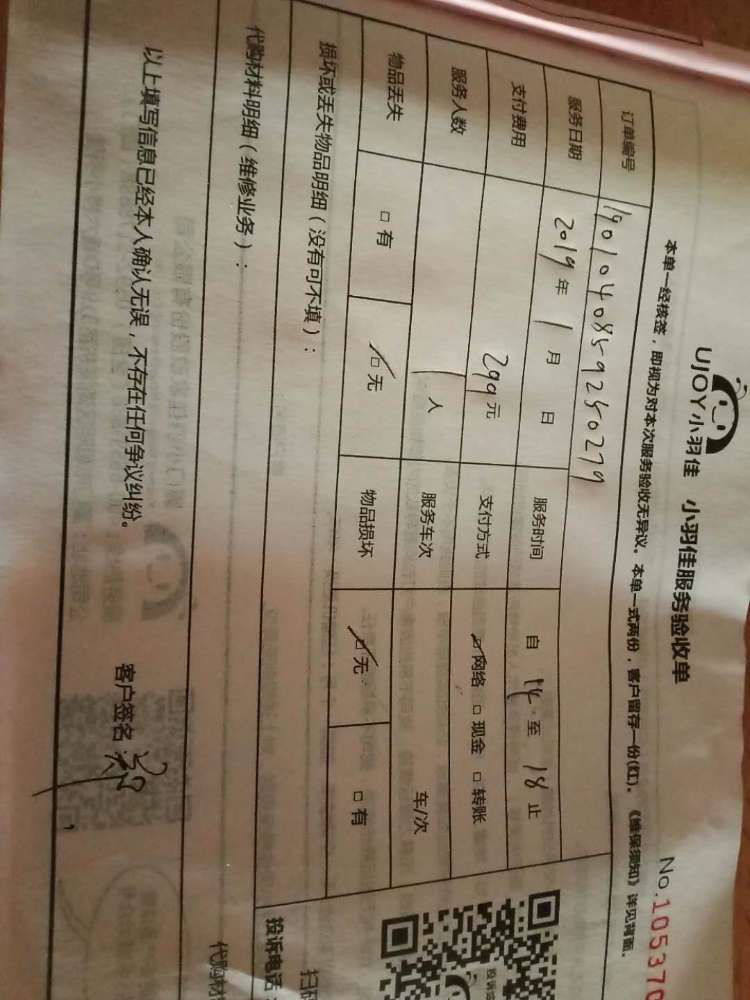 UJOY小羽佳 小羽佳服务验收单
No.105370
本单一经核签，即视为对本次服务验收无异议。本单一式两份，客户留存一份(红)。《维保须知》详见背面。
订单编号 1901040859250279
服务日期 2019年 1月 日 服务时间 自 14 至 18 止
支付费用 299元 支付方式 ☑网络 □现金 □转账
服务人数 1人 服务车次 车/次
物品丢失 □有 ☑无 物品损坏 ☑无 □有
损坏或丢失物品明细（没有可不填）：
代购材料明细（维修业务）：
以上填写信息已经本人确认无误，不存在任何争议纠纷。
客户签名：
投诉电话：
代购材